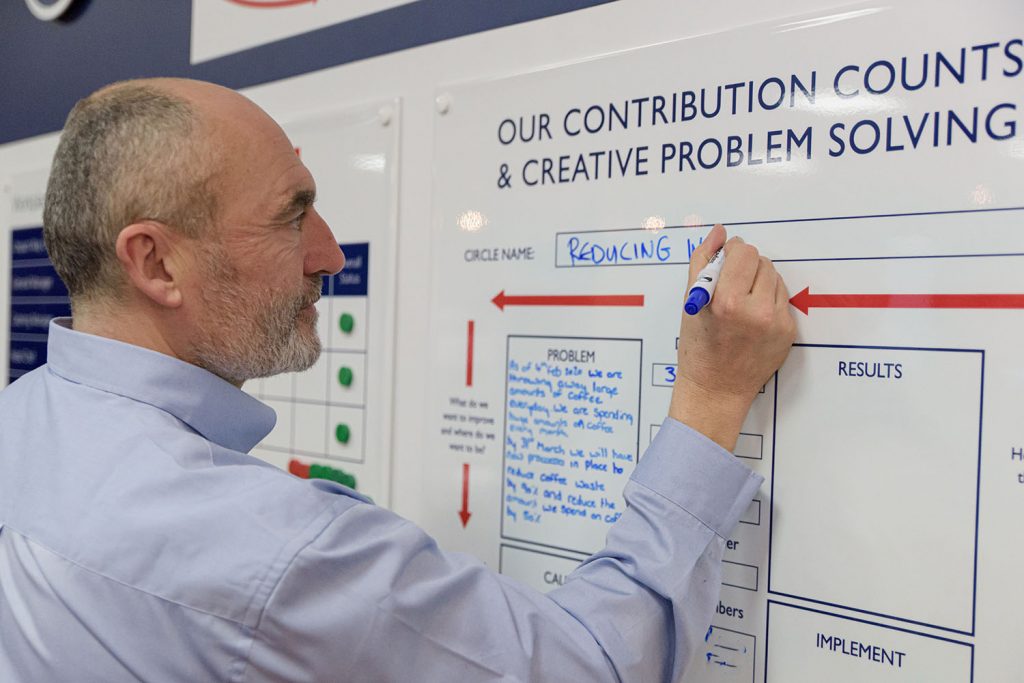 OUR CONTRIBUTION COUNTS
& CREATIVE PROBLEM SOLVING
CIRCLE NAME:
REDUCING W
PROBLEM
As of 4th Feb 2020 we are
throwing away large
amounts of coffee
everyday. We are spending
huge amounts on coffee
every month.
By 31st March we will have
new processes in place to
reduce coffee waste
by 90% and reduce the
amount we spend on cof
by 50%
What do we
want to improve
and where do we
want to be?
3
RESULTS
CAU
er
bers
IMPLEMENT
Status